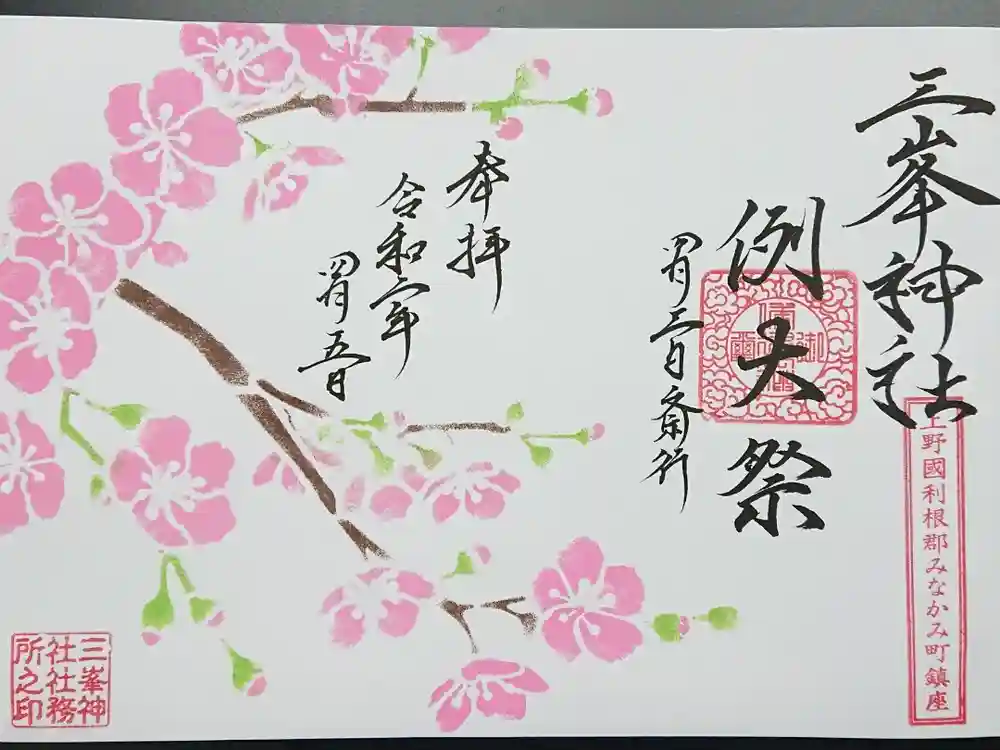 三峯神社
上野國利根郡みなかみ町鎮座
例大祭
四月三日斎行
奉拝
令和六年
四月五日
三峯神
社社務
所之印